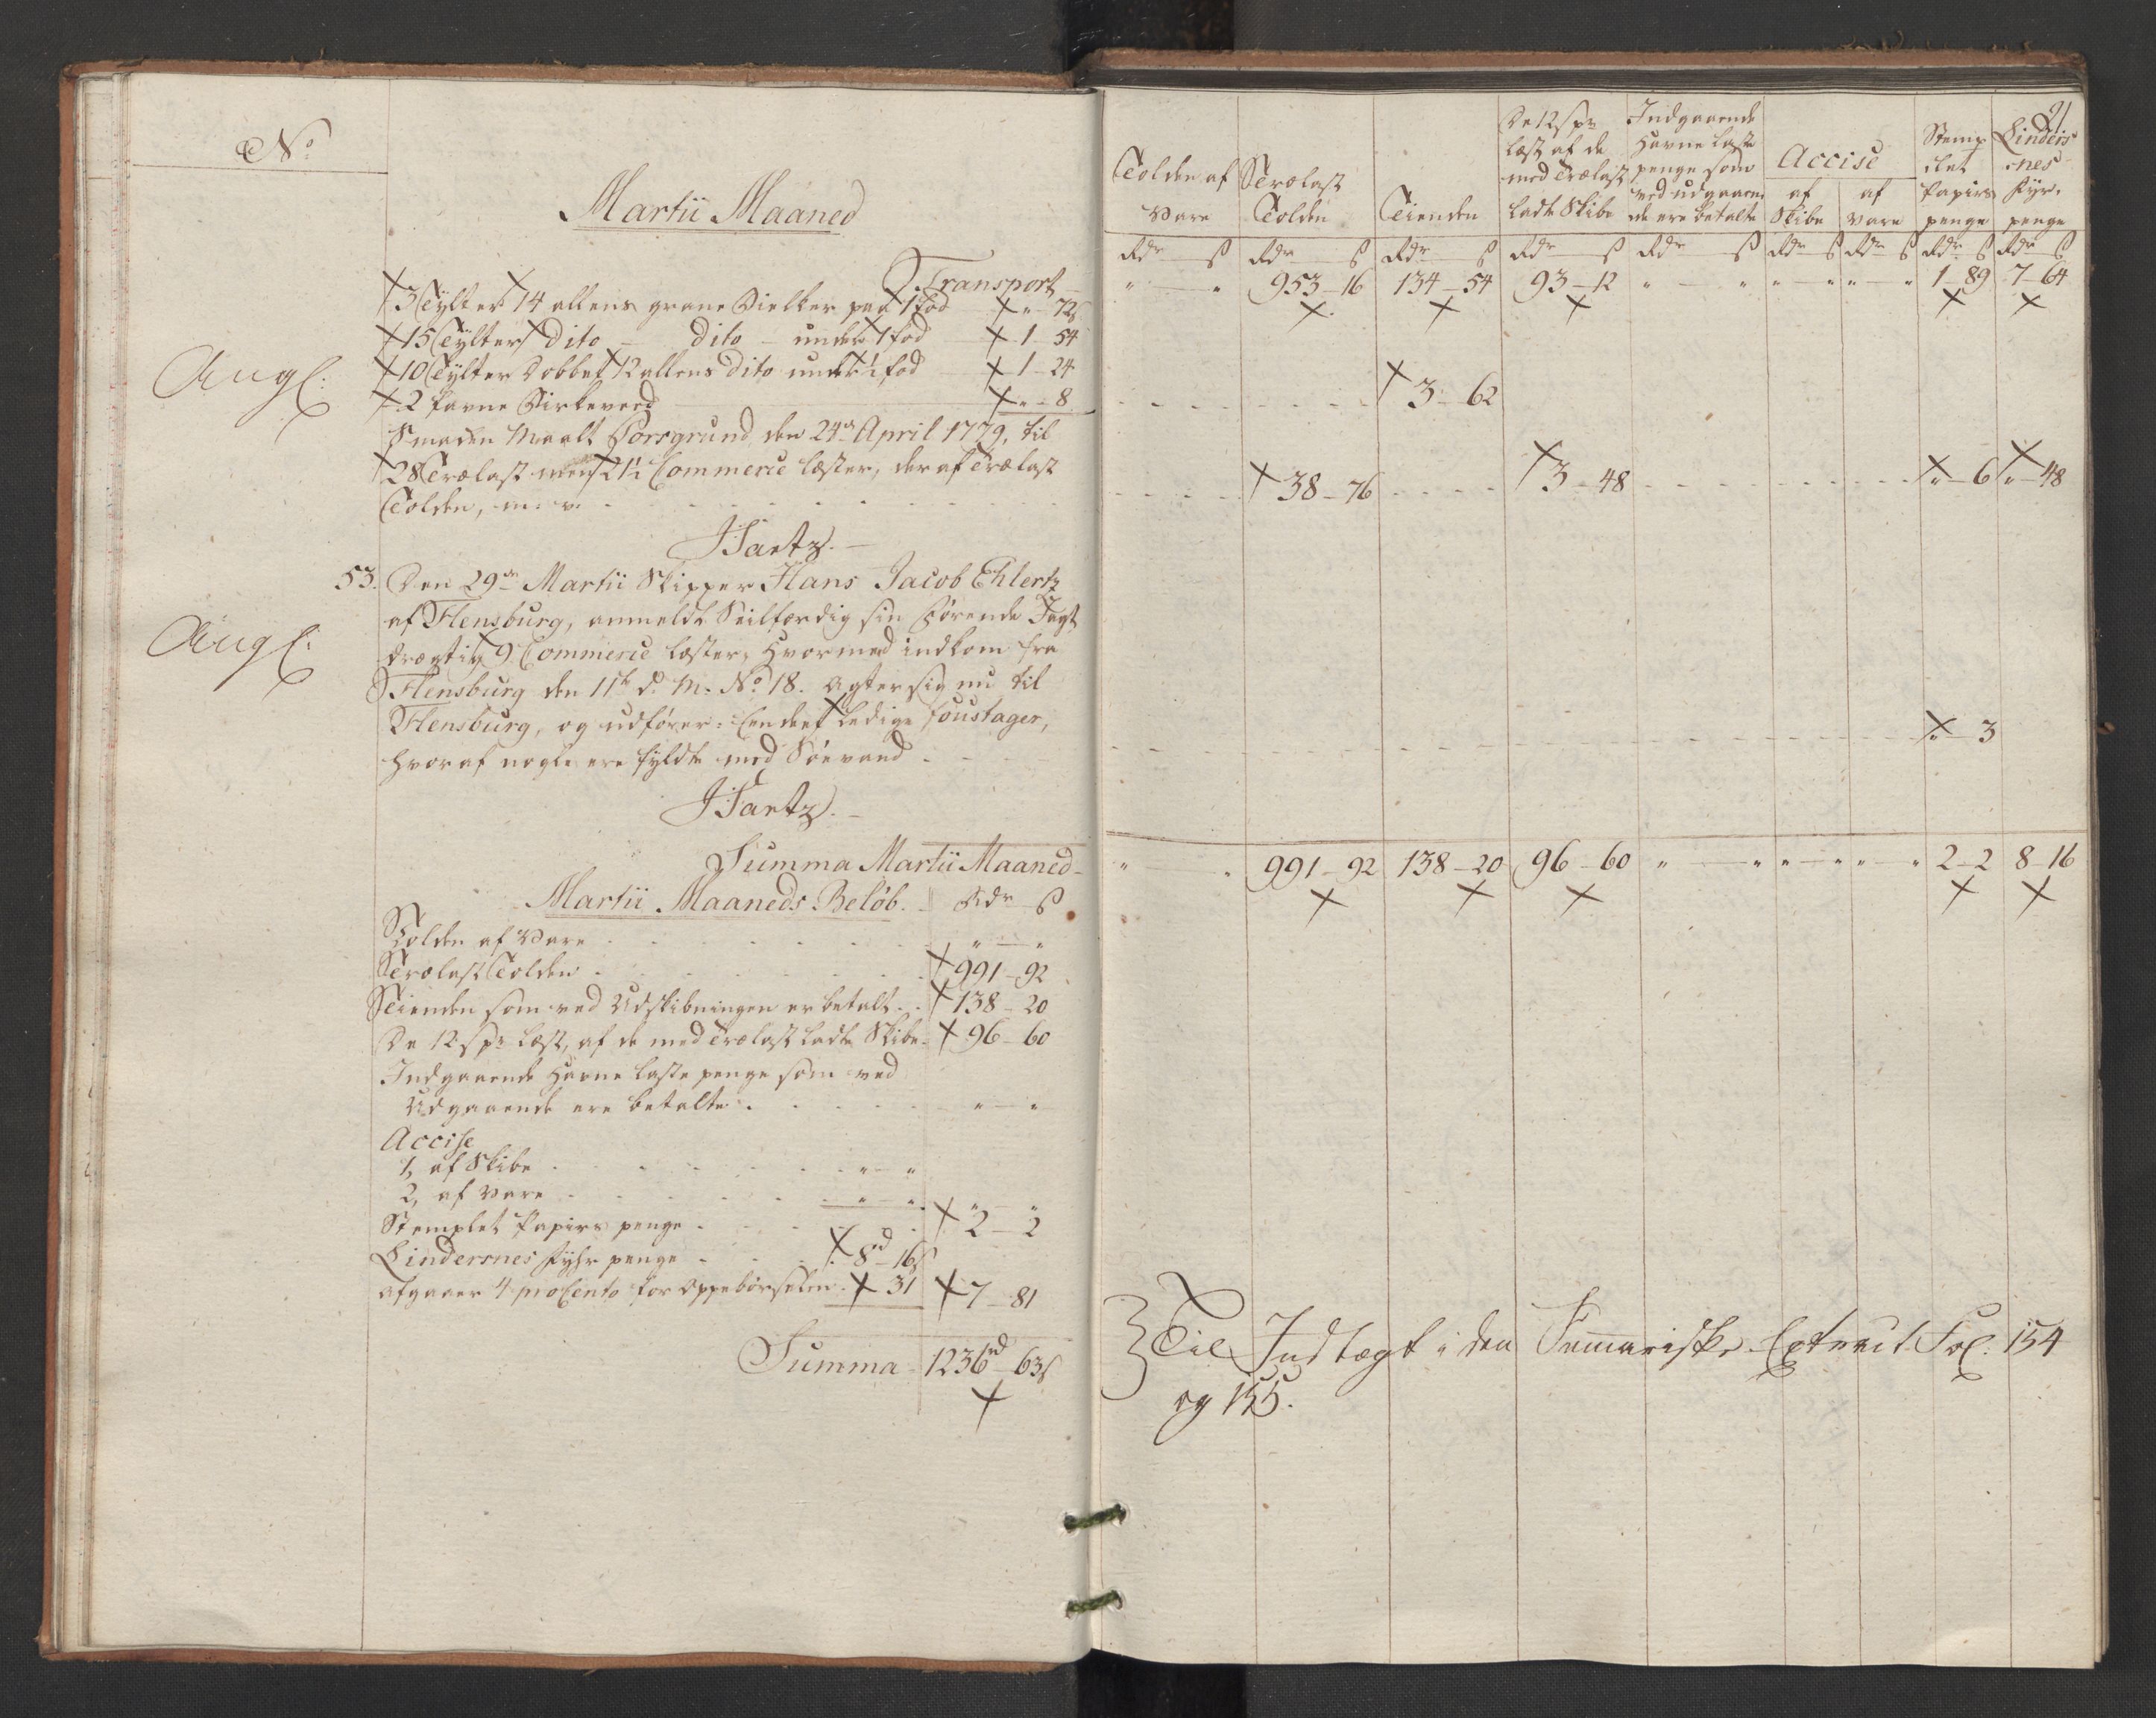 No
Martii Maaned
Transport
3 Tylter 14 allens grane Dielker paa 1 fod " - 72 s
15 Tylter Dito - Dito - under 1 fod 1 - 54
10 Tylter Dobbelt 12 allens Dito under 1 fod 1 - 24
Angl:
2 favne Birkeveed " - 8
Smaden Maalt Porsgrund, den 24de April 1779, til
28 Trælast men 21½ Commerce læster, der af Trælast
Tolden, m: v:
J Hartz.
53. Den 29de Martii Skipper Hans Jacob Ehlertz
af Flensburg, anmeldt Seilfærdig sin Førende Jagt
Angl:
drægtig 9 Commerce læster, hvormed indkom fra
Flensburg den 11te d: M: No 18. agter sig nu til
Flensburg, og udfører: Een deel Ledige foustager,
hvoraf nogle ere fyldte med Søevand
J Hartz.
Summa Martii Maaned
Martii Maaneds Beløb. Rdr ß
Tolden af Vare " - "
Trælast Tolden 991 - 92
Tienden som ved Udskibningen er betalt 138 - 20
De 12 s pr Læst, af de med Trælast ladte Skibe 96 - 60
Indgaaende Havne Laste penge som ved
Udgaaende ere betalte " - "
Accise
1, af Skibe " - "
2, af Vare " - " " - "
Stemplet Papirs penge 2 - 2
Lindersnes Fyhr penge 8 rd - 16 s
afgaaer 4 pro Cento for Oppebørselen 31 7 - 81
Summa 1236 rd - 63 s
21
Tolden af Vare
Trælast Tolden
Tienden
De 12 s pr læst af de med Trælast ladte Skibe
Indgaaende Havne Laste penge som ved udgaaende ere betalte
Accise
af Skibe
af Vare
Stemplet Papirs penge
Lindersnes Fyr penge
Rdr ß Rdr ß Rdr ß Rdr ß Rdr ß Rdr ß Rdr ß Rdr ß Rdr ß
" - " 953 - 16 134 - 54 93 - 12 " - " " - " " - " 1 - 89 7 - 64
3 - 62
38 - 76 3 - 48 " - 6 " - 48
" - 3
" - " 991 - 92 138 - 20 96 - 60 " - " " - " " - " 2 - 2 8 - 16
Til Indtægt i den Sumariske Extract Fol: 154
og 155.